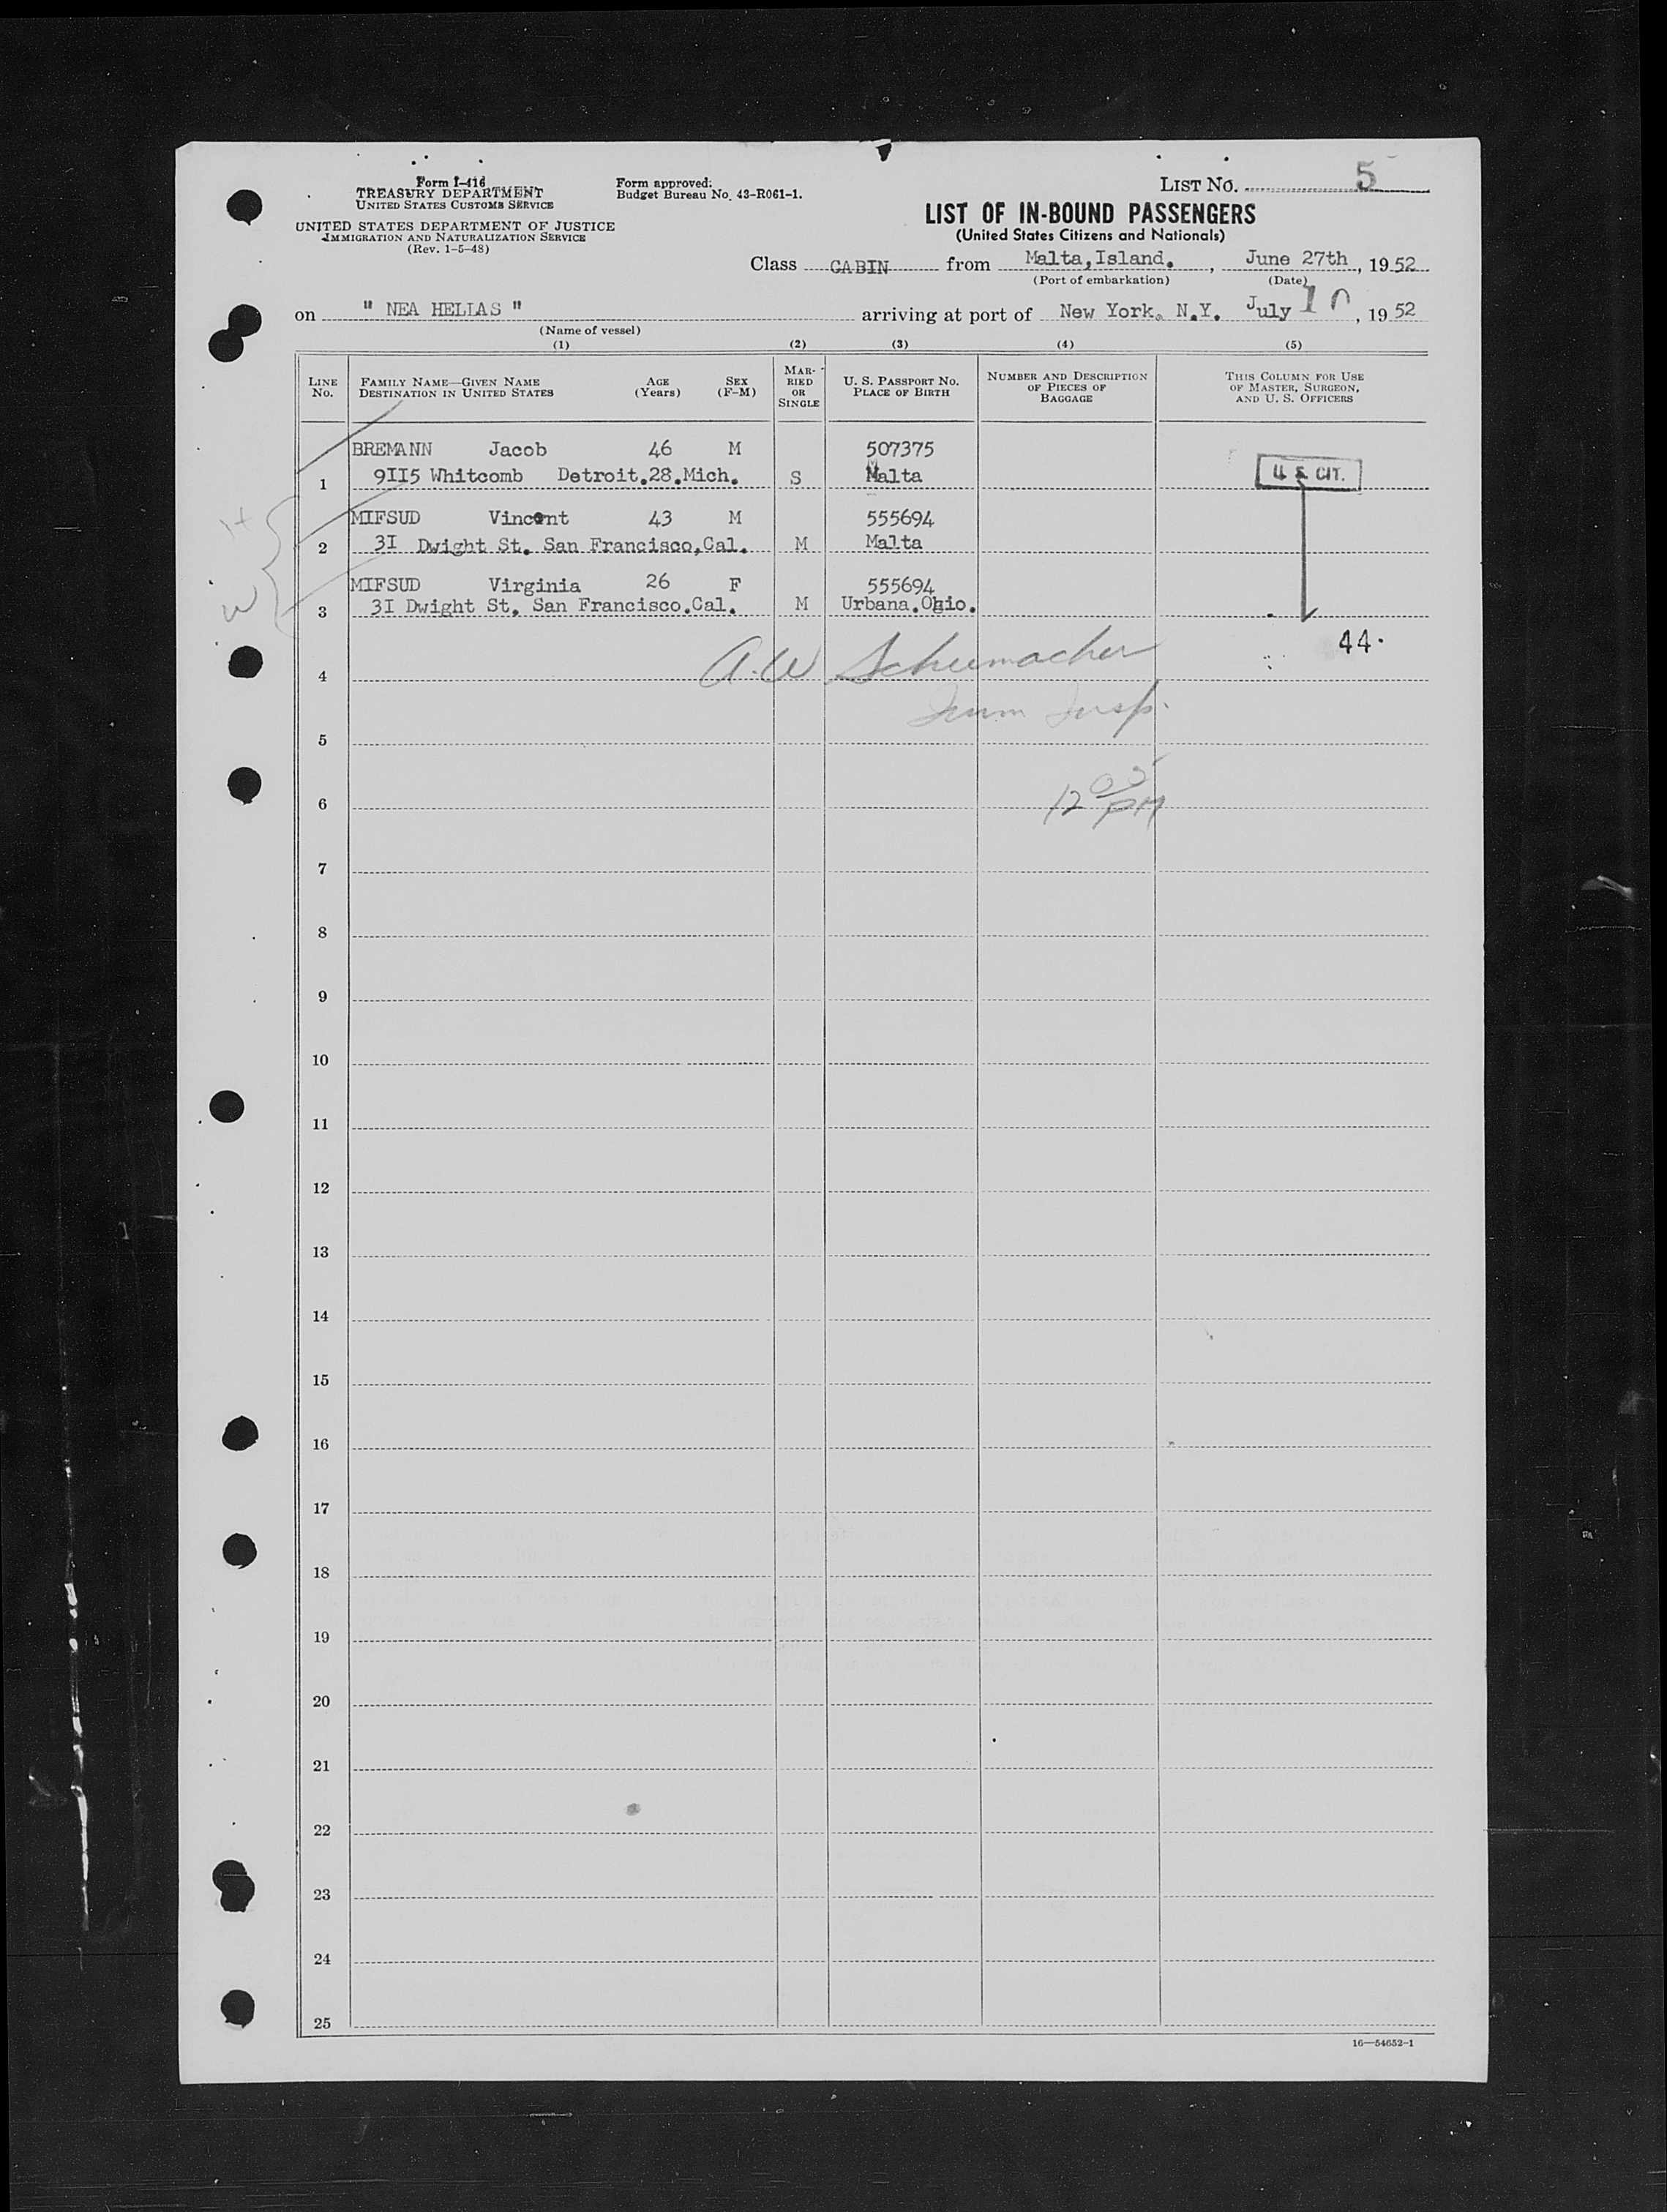 Form I-416
TREASURY DEPARTMENT
UNITED STATES CUSTOMS SERVICE
UNITED STATES DEPARTMENT OF JUSTICE
IMMIGRATION AND NATURALIZATION SERVICE
(Rev. 1-5-48)
Form approved:
Budget Bureau No. 43-R061-1.
LIST NO. 5
LIST OF IN-BOUND PASSENGERS
(United States Citizens and Nationals)
Class CABIN from Malta,Island. , June 27th , 19 52
(Port of embarkation) (Date)
on " NEA HELLAS " arriving at port of New York. N.Y. July 10 , 19 52
(Name of vessel)
(1) (2) (3) (4) (5)
LINE NO. FAMILY NAME—GIVEN NAME DESTINATION IN UNITED STATES AGE (Years) SEX (F-M) MARRIED OR SINGLE U. S. PASSPORT NO. PLACE OF BIRTH NUMBER AND DESCRIPTION OF PIECES OF BAGGAGE THIS COLUMN FOR USE OF MASTER, SURGEON, AND U. S. OFFICERS
BREMANN Jacob 46 M 507375
1 9II5 Whitcomb Detroit.28.Mich. S Malta U S CIT.
MIFSUD Vincent 43 M 555694
2 3I Dwight St. San Francisco,Cal. M Malta
MIFSUD Virginia 26 F 555694
3 3I Dwight St. San Francisco.Cal. M Urbana.Ohio.
44.
4 A.W Schumacher
Imm Insp.
5
12 05 PM
6
7
8
9
10
11
12
13
14
15
16
17
18
19
20
21
22
23
24
25
16—54652-1